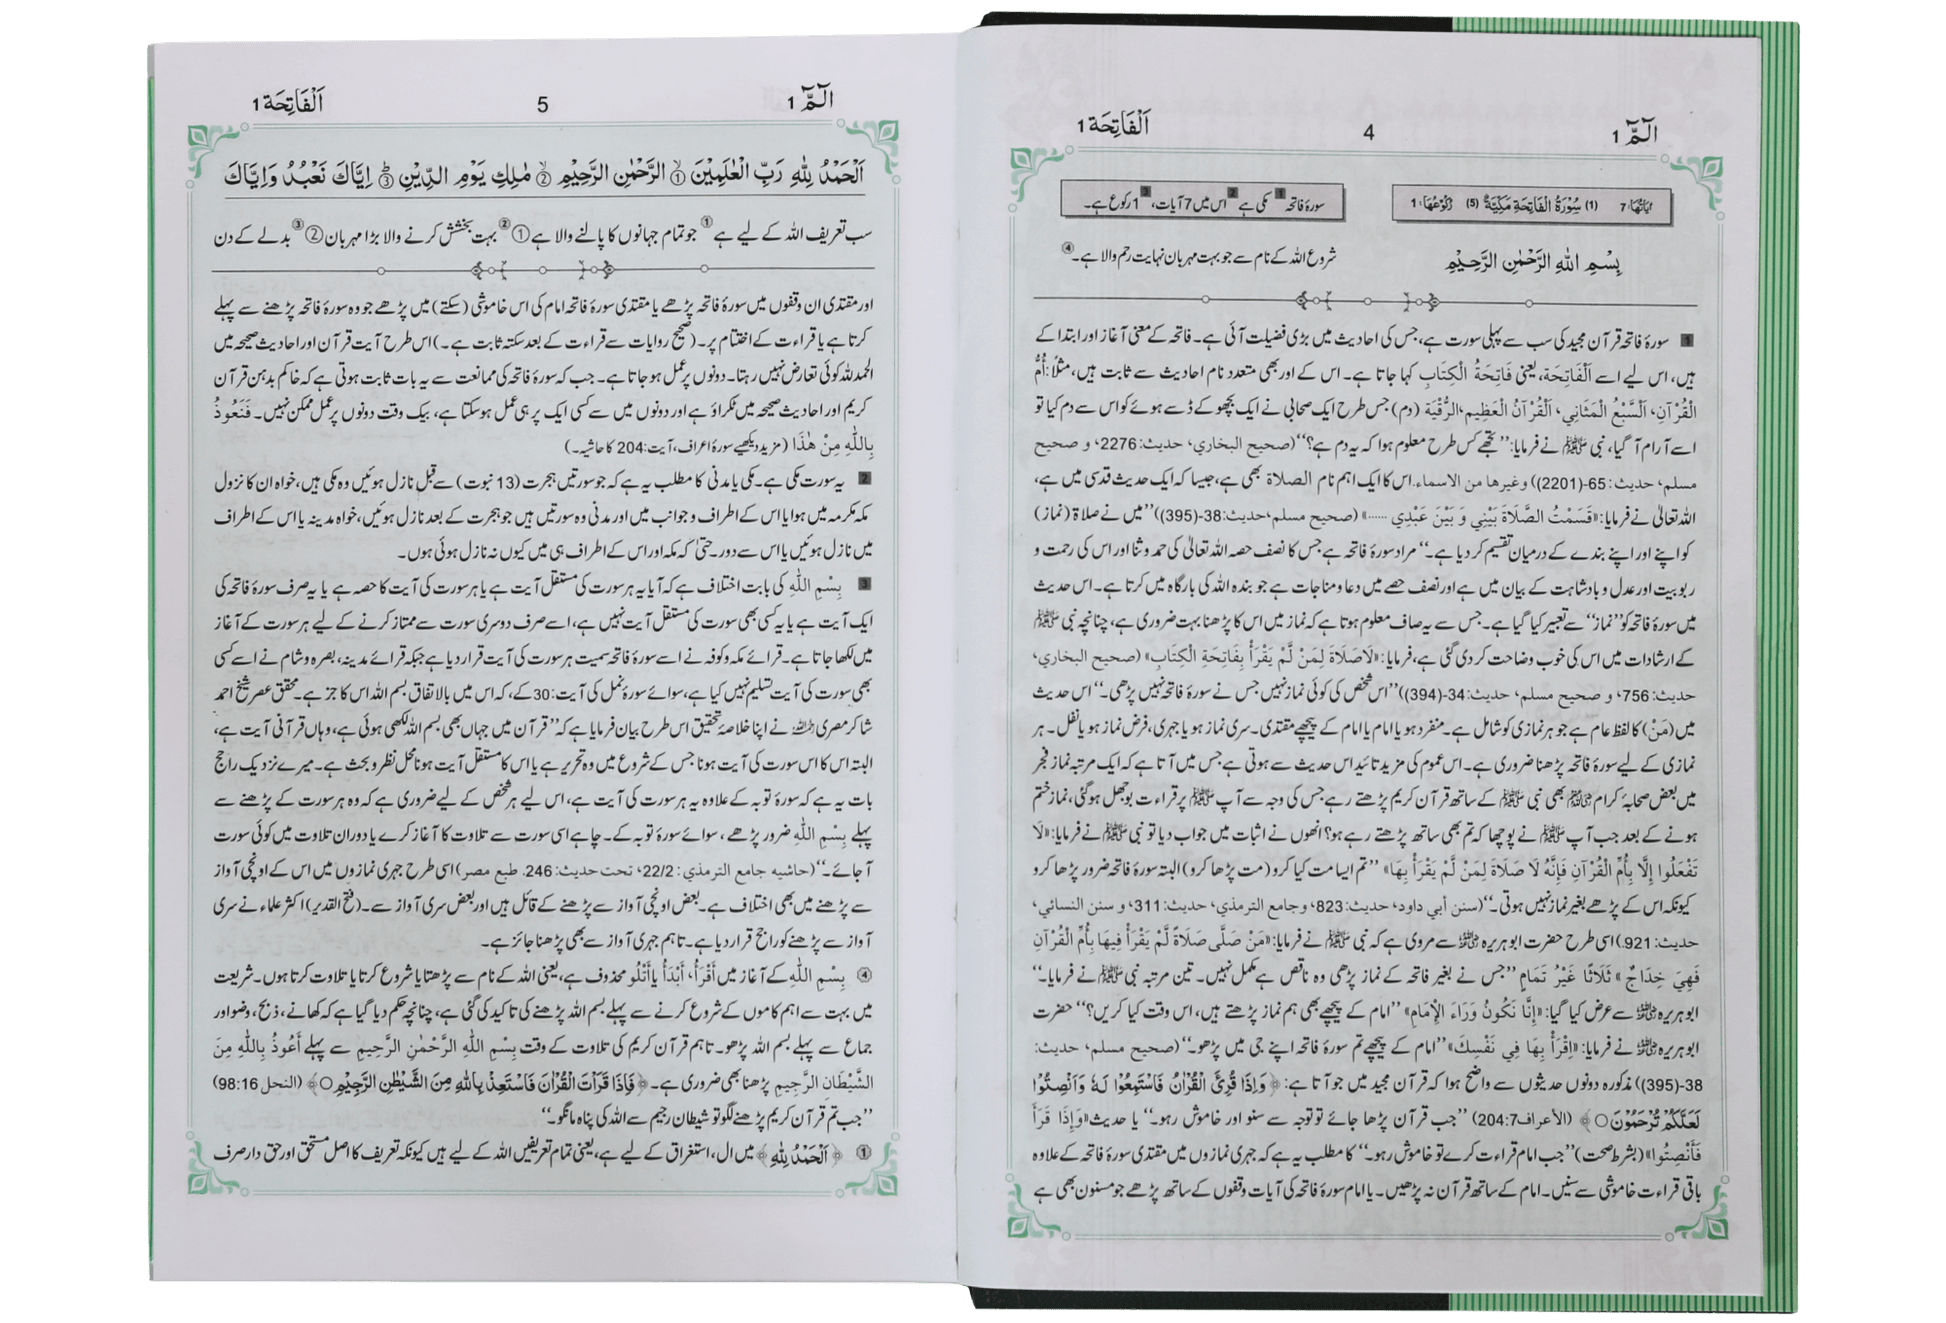 الٓمّٓ 1
4
اَلْفَاتِحَة 1
اٰیَاتُهَا: 7 (1) سُوْرَةُ الْفَاتِحَةِ مَكِّيَّةٌ (5) رُكُوْعُهَا: 1
سورۂ فاتحہ 1 مکی ہے 2 اس میں 7 آیات، 3 1 رکوع ہے۔
بِسْمِ اللهِ الرَّحْمٰنِ الرَّحِيْمِ
شروع اللہ کے نام سے جو بہت مہربان نہایت رحم والا ہے۔ ④
1 سورۂ فاتحہ قرآن مجید کی سب سے پہلی سورت ہے، جس کی احادیث میں بڑی فضیلت آئی ہے۔ فاتحہ کے معنی آغاز اور ابتدا کے
ہیں، اس لیے اسے اَلْفَاتِحَة، یعنی فَاتِحَةُ الْكِتَابِ کہا جاتا ہے۔ اس کے اور بھی متعدد نام احادیث سے ثابت ہیں، مثلاً: أُمُّ
الْقُرْآنِ، اَلسَّبْعُ الْمَثَانِي، اَلْقُرْآنُ الْعَظِيم، الرُّقْيَة (دم) جس طرح ایک صحابی نے ایک بچھو کے ڈسے ہوئے کو اس سے دم کیا تو
اسے آرام آ گیا، نبی ﷺ نے فرمایا: ’’تجھے کس طرح معلوم ہوا کہ یہ دم ہے؟‘‘ (صحیح البخاري، حدیث: 2276، و صحیح
مسلم، حدیث: 65-(2201)) وغیرها من الاسماء. اس کا ایک اہم نام الصلاة بھی ہے، جیسا کہ ایک حدیث قدسی میں ہے،
اللہ تعالیٰ نے فرمایا: «قَسَمْتُ الصَّلَاةَ بَيْنِي وَ بَيْنَ عَبْدِي ......» (صحیح مسلم، حدیث: 38-(395)) ’’میں نے صلاۃ (نماز)
کو اپنے اور اپنے بندے کے درمیان تقسیم کر دیا ہے۔‘‘ مراد سورۂ فاتحہ ہے جس کا نصف حصہ اللہ تعالیٰ کی حمد و ثنا اور اس کی رحمت و
ربوبیت اور عدل و بادشاہت کے بیان میں ہے اور نصف حصے میں دعا و مناجات ہے جو بندہ اللہ کی بارگاہ میں کرتا ہے۔ اس حدیث
میں سورۂ فاتحہ کو ’’نماز‘‘ سے تعبیر کیا گیا ہے۔ جس سے یہ صاف معلوم ہوتا ہے کہ نماز میں اس کا پڑھنا بہت ضروری ہے، چنانچہ نبی ﷺ
کے ارشادات میں اس کی خوب وضاحت کر دی گئی ہے، فرمایا: «لَاصَلَاةَ لِمَنْ لَّمْ يَقْرَأْ بِفَاتِحَةِ الْكِتَابِ» (صحیح البخاري،
حدیث: 756، و صحیح مسلم، حدیث: 34-(394)) ’’اس شخص کی کوئی نماز نہیں جس نے سورۂ فاتحہ نہیں پڑھی۔‘‘ اس حدیث
میں (مَنْ) کا لفظ عام ہے جو ہر نمازی کو شامل ہے۔ منفرد ہو یا امام یا امام کے پیچھے مقتدی۔ سری نماز ہو یا جہری، فرض نماز ہو یا نفل۔ ہر
نمازی کے لیے سورۂ فاتحہ پڑھنا ضروری ہے۔ اس عموم کی مزید تائید اس حدیث سے ہوتی ہے جس میں آتا ہے کہ ایک مرتبہ نماز فجر
میں بعض صحابۂ کرام بھی نبی ﷺ کے ساتھ قرآن کریم پڑھتے رہے جس کی وجہ سے آپ ﷺ پر قراءت بوجھل ہو گئی، نماز ختم
ہونے کے بعد جب آپ ﷺ نے پوچھا کہ تم بھی ساتھ پڑھتے رہے ہو؟ انھوں نے اثبات میں جواب دیا تو نبی ﷺ نے فرمایا: «لَا
تَفْعَلُوا إِلَّا بِأُمِّ الْقُرْآنِ فَإِنَّهُ لَا صَلَاةَ لِمَنْ لَّمْ يَقْرَأْ بِهَا» ’’تم ایسا مت کیا کرو (مت پڑھا کرو) البتہ سورۂ فاتحہ ضرور پڑھا کرو
کیونکہ اس کے پڑھے بغیر نماز نہیں ہوتی۔‘‘ (سنن أبي داود، حدیث: 823، وجامع الترمذي، حدیث: 311، و سنن النسائي،
حدیث: 921.) اسی طرح حضرت ابوہریرہ سے مروی ہے کہ نبی ﷺ نے فرمایا: «مَنْ صَلَّى صَلَاةً لَّمْ يَقْرَأْ فِيهَا بِأُمِّ الْقُرْآنِ
فَهِيَ خِدَاجٌ» ثَلَاثًا غَيْرُ تَمَامٍ ’’جس نے بغیر فاتحہ کے نماز پڑھی وہ ناقص ہے مکمل نہیں۔ تین مرتبہ نبی ﷺ نے فرمایا۔‘‘
ابوہریرہ سے عرض کیا گیا: «إِنَّا نَكُونُ وَرَاءَ الْإِمَامِ» ’’امام کے پیچھے بھی ہم نماز پڑھتے ہیں، اس وقت کیا کریں؟‘‘ حضرت
ابوہریرہ نے فرمایا: «اِقْرَأْ بِهَا فِي نَفْسِكَ» ’’امام کے پیچھے تم سورۂ فاتحہ اپنے جی میں پڑھو۔‘‘ (صحیح مسلم، حدیث:
38-(395)) مذکورہ دونوں حدیثوں سے واضح ہوا کہ قرآن مجید میں جو آتا ہے: ﴿وَاِذَا قُرِئَ الْقُرْاٰنُ فَاسْتَمِعُوْا لَهٗ وَاَنْصِتُوْا
لَعَلَّكُمْ تُرْحَمُوْنَ○﴾ (الأعراف 204:7) ’’جب قرآن پڑھا جائے تو توجہ سے سنو اور خاموش رہو۔‘‘ یا حدیث «وَإِذَا قَرَأَ
فَأَنْصِتُوا» (بشرط صحت) ’’جب امام قراءت کرے تو خاموش رہو۔‘‘ کا مطلب یہ ہے کہ جہری نمازوں میں مقتدی سورۂ فاتحہ کے علاوہ
باقی قراءت خاموشی سے سنیں۔ امام کے ساتھ قرآن نہ پڑھیں۔ یا امام سورۂ فاتحہ کی آیات وقفوں کے ساتھ پڑھے جو مسنون بھی ہے
الٓمّٓ 1
5
اَلْفَاتِحَة 1
اَلْحَمْدُ لِلّٰهِ رَبِّ الْعٰلَمِيْنَ ① الرَّحْمٰنِ الرَّحِيْمِ ② مٰلِكِ يَوْمِ الدِّيْنِ ③ اِيَّاكَ نَعْبُدُ وَاِيَّاكَ
سب تعریف اللہ کے لیے ہے ① جو تمام جہانوں کا پالنے والا ہے ① ② بہت بخشش کرنے والا بڑا مہربان ② ③ بدلے کے دن
اور مقتدی ان وقفوں میں سورۂ فاتحہ پڑھے یا مقتدی سورۂ فاتحہ امام کی اس خاموشی (سکتے) میں پڑھے جو وہ سورۂ فاتحہ پڑھنے سے پہلے
کرتا ہے یا قراءت کے اختتام پر۔ (صحیح روایات سے قراءت کے بعد سکتہ ثابت ہے۔) اس طرح آیت قرآن اور احادیث صحیحہ میں
الحمدللہ کوئی تعارض نہیں رہتا۔ دونوں پر عمل ہو جاتا ہے۔ جب کہ سورۂ فاتحہ کی ممانعت سے یہ بات ثابت ہوتی ہے کہ خاکم بدہن قرآن
کریم اور احادیث صحیحہ میں ٹکراؤ ہے اور دونوں میں سے کسی ایک پر ہی عمل ہو سکتا ہے، بیک وقت دونوں پر عمل ممکن نہیں۔ فَنَعُوذُ
بِاللّٰهِ مِنْ هٰذَا (مزید دیکھیے سورۂ اعراف، آیت: 204 کا حاشیہ۔)
2 یہ سورت مکی ہے۔ مکی یا مدنی کا مطلب یہ ہے کہ جو سورتیں ہجرت (13 نبوت) سے قبل نازل ہوئیں وہ مکی ہیں، خواہ ان کا نزول
مکہ مکرمہ میں ہوا یا اس کے اطراف و جوانب میں اور مدنی وہ سورتیں ہیں جو ہجرت کے بعد نازل ہوئیں، خواہ مدینہ یا اس کے اطراف
میں نازل ہوئیں یا اس سے دور۔ حتیٰ کہ مکہ اور اس کے اطراف ہی میں کیوں نہ نازل ہوئی ہوں۔
3 بِسْمِ اللّٰهِ کی بابت اختلاف ہے کہ آیا یہ ہر سورت کی مستقل آیت ہے یا ہر سورت کی آیت کا حصہ ہے یا یہ صرف سورۂ فاتحہ کی
ایک آیت ہے یا یہ کسی بھی سورت کی مستقل آیت نہیں ہے، اسے صرف دوسری سورت سے ممتاز کرنے کے لیے ہر سورت کے آغاز
میں لکھا جاتا ہے۔ قرائے مکہ و کوفہ نے اسے سورۂ فاتحہ سمیت ہر سورت کی آیت قرار دیا ہے جبکہ قرائے مدینہ، بصرہ و شام نے اسے کسی
بھی سورت کی آیت تسلیم نہیں کیا ہے، سوائے سورۂ نمل کی آیت: 30 کے، کہ اس میں بالاتفاق بسم اللہ اس کا جز ہے۔ محقق عصر شیخ احمد
شاکر مصری نے اپنا خلاصۂ تحقیق اس طرح بیان فرمایا ہے کہ ’’قرآن میں جہاں بھی بسم اللہ لکھی ہوئی ہے، وہاں قرآنی آیت ہے،
البتہ اس کا اس سورت کی آیت ہونا جس کے شروع میں وہ تحریر ہے یا اس کا مستقل آیت ہونا محل نظر و بحث ہے۔ میرے نزدیک راجح
بات یہ ہے کہ سورۂ توبہ کے علاوہ یہ ہر سورت کی آیت ہے، اس لیے ہر شخص کے لیے ضروری ہے کہ وہ ہر سورت کے پڑھنے سے
پہلے بِسْمِ اللّٰهِ ضرور پڑھے، سوائے سورۂ توبہ کے۔ چاہے اسی سورت سے تلاوت کا آغاز کرے یا دوران تلاوت میں کوئی سورت
آ جائے۔‘‘ (حاشیه جامع الترمذي: 22/2، تحت حدیث: 246. طبع مصر) اسی طرح جہری نمازوں میں اس کے اونچی آواز
سے پڑھنے میں بھی اختلاف ہے۔ بعض اونچی آواز سے پڑھنے کے قائل ہیں اور بعض سری آواز سے۔ (فتح القدیر) اکثر علماء نے سری
آواز سے پڑھنے کو راجح قرار دیا ہے۔ تاہم جہری آواز سے بھی پڑھنا جائز ہے۔
④ بِسْمِ اللّٰهِ کے آغاز میں أَقْرَأُ، أَبْدَأُ یا أَتْلُو محذوف ہے، یعنی اللہ کے نام سے پڑھتا یا شروع کرتا یا تلاوت کرتا ہوں۔ شریعت
میں بہت سے اہم کاموں کے شروع کرنے سے پہلے بسم اللہ پڑھنے کی تاکید کی گئی ہے، چنانچہ حکم دیا گیا ہے کہ کھانے، ذبح، وضو اور
جماع سے پہلے بسم اللہ پڑھو۔ تاہم قرآن کریم کی تلاوت کے وقت بِسْمِ اللّٰهِ الرَّحْمٰنِ الرَّحِيمِ سے پہلے أَعُوذُ بِاللّٰهِ مِنَ
الشَّيْطَانِ الرَّجِيمِ پڑھنا بھی ضروری ہے۔ ﴿فَاِذَا قَرَاْتَ الْقُرْاٰنَ فَاسْتَعِذْ بِاللّٰهِ مِنَ الشَّيْطٰنِ الرَّجِيْمِ○﴾ (النحل 98:16)
’’جب تم قرآن کریم پڑھنے لگو تو شیطان رجیم سے اللہ کی پناہ مانگو۔‘‘
① ﴿اَلْحَمْدُ لِلّٰهِ﴾ میں ال، استغراق کے لیے ہے، یعنی تمام تعریفیں اللہ کے لیے ہیں کیونکہ تعریف کا اصل مستحق اور حق دار صرف